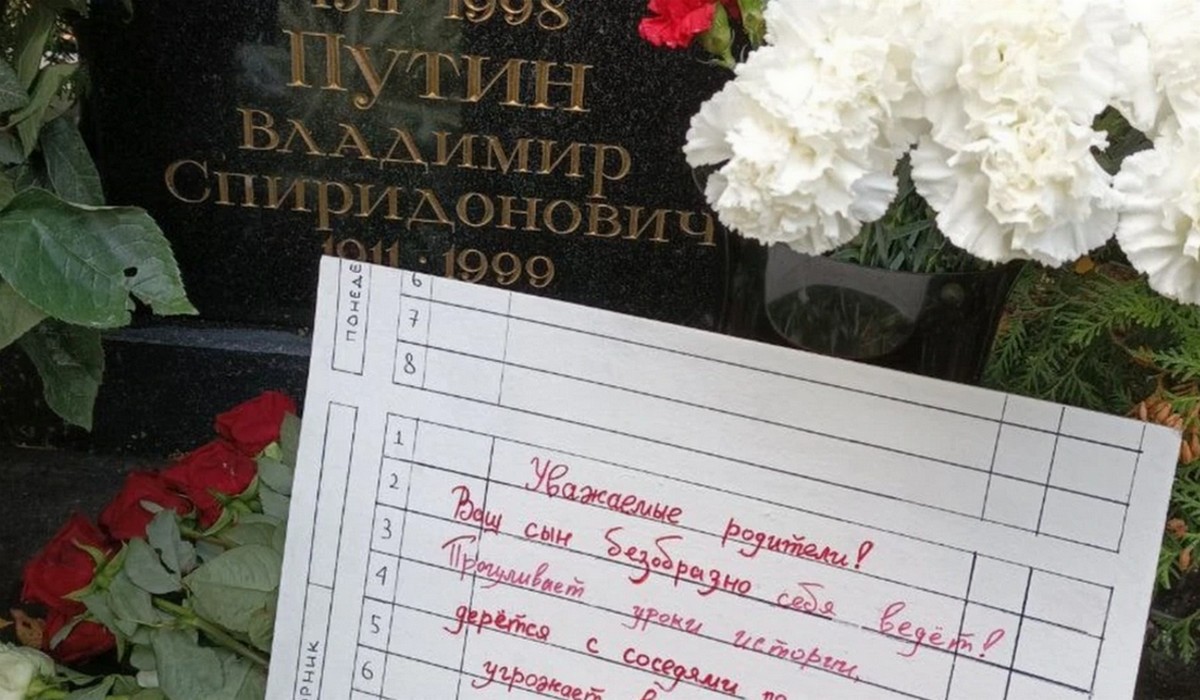 1911 1998
ПУТИН
ВЛАДИМИР
СПИРИДОНОВИЧ
1911 · 1999
ПОНЕДЕ
6
7
8
1
2 Уважаемые родители!
3 Ваш сын безобразно себя ведёт!
4 Прогуливает уроки истории,
5 дерётся с соседями по
6 угрожает
РНИК